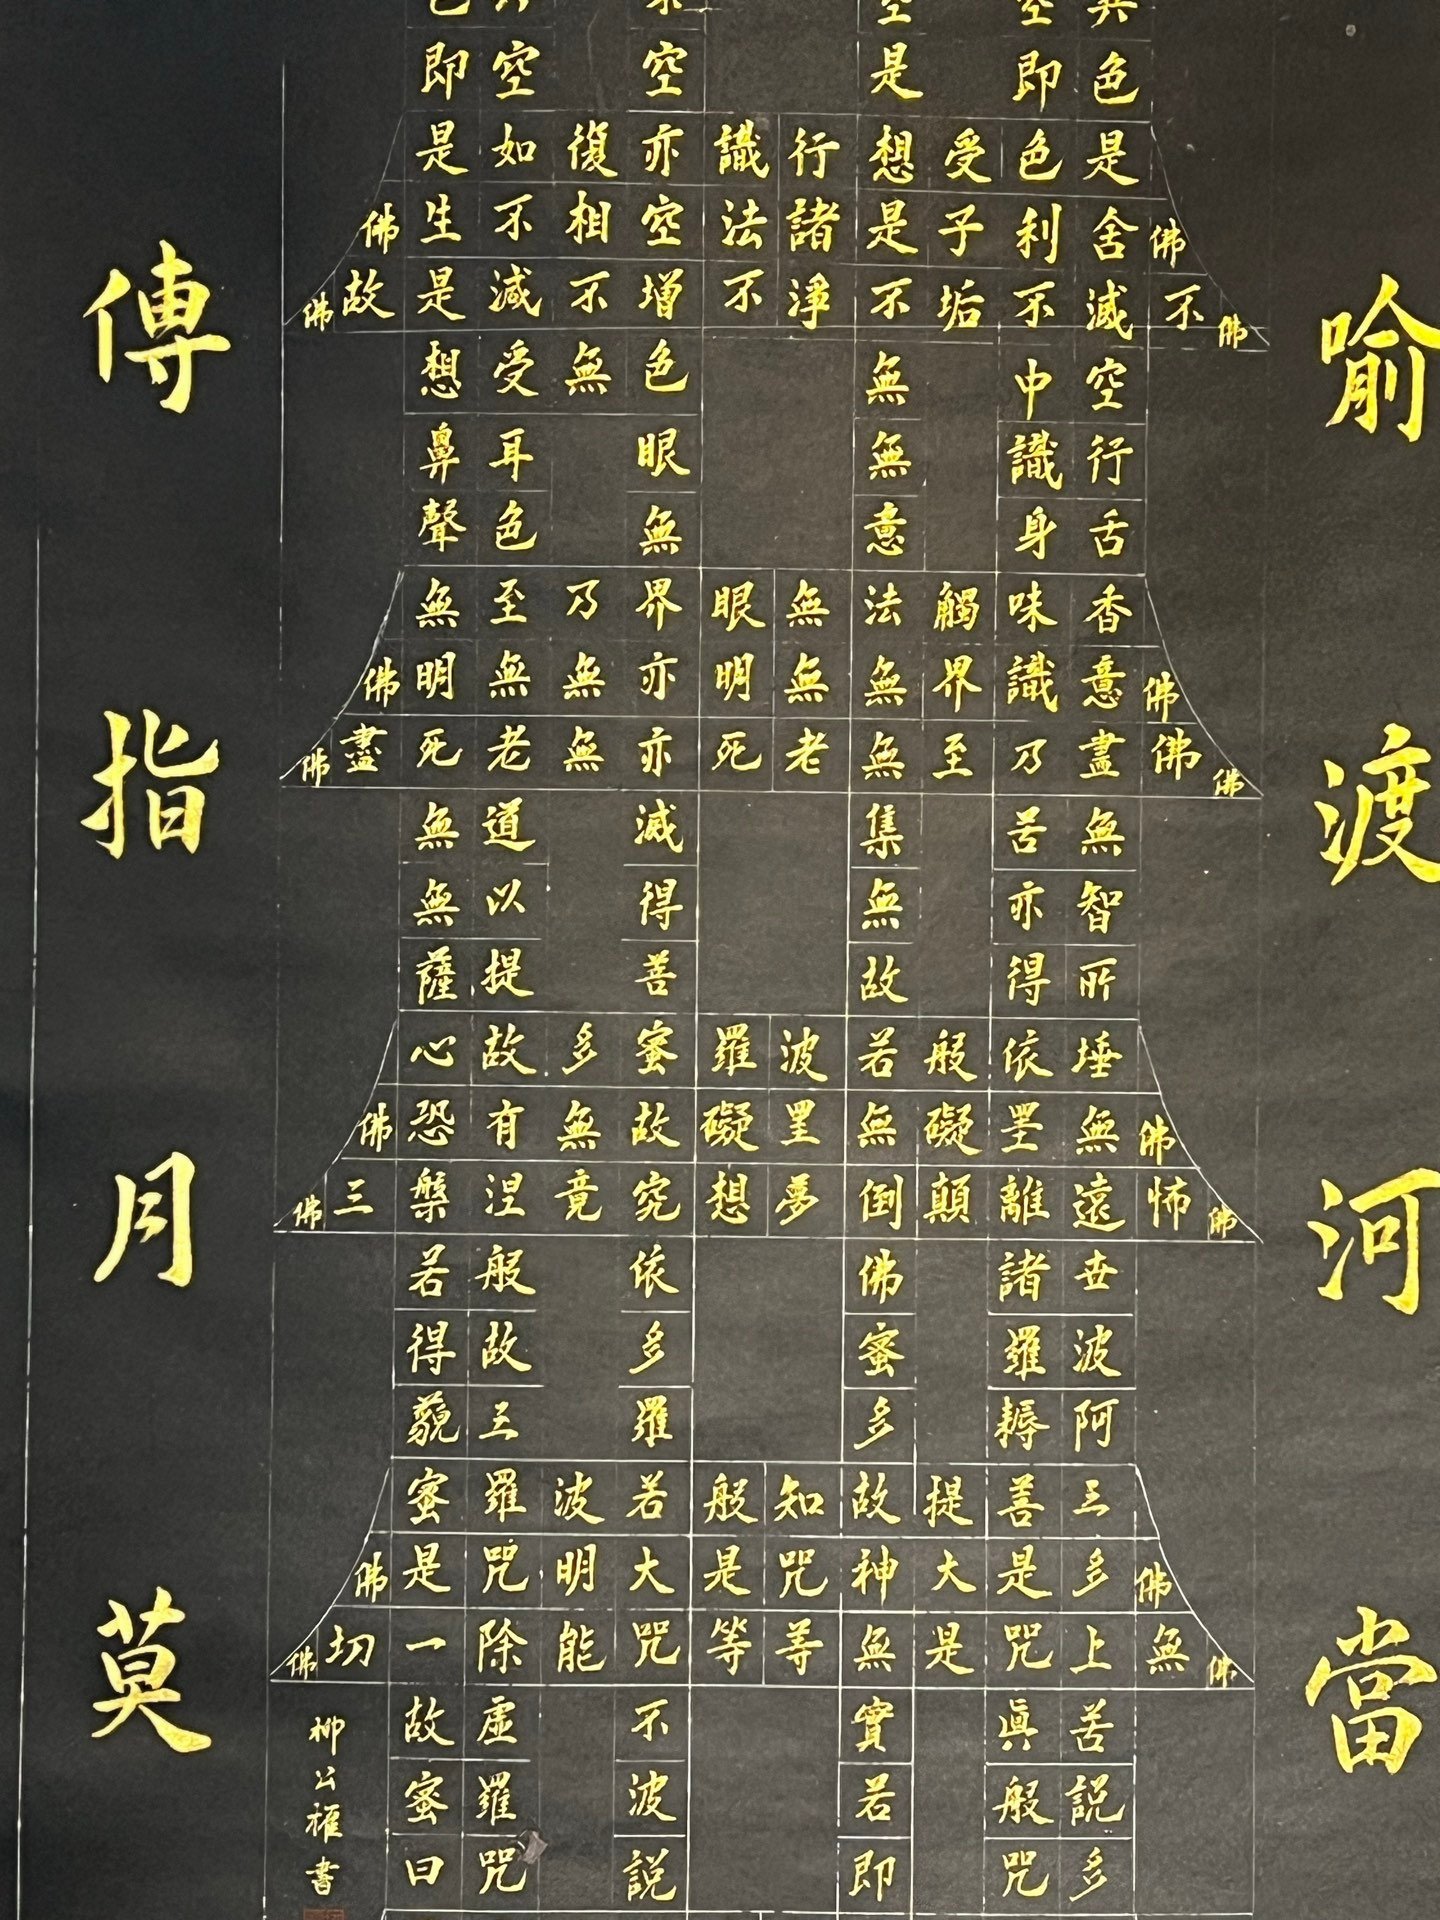 喻渡河當
色即是空空即
是色受想行識亦復如是
佛舍利子是諸法空相不生佛
佛不滅不垢不淨不增不減是故佛
空中無色無受想
行識無眼耳鼻
舌身意無色聲
香味觸法無眼界乃至無
佛意識界無無明亦無無明佛
佛佛盡乃至無老死亦無老死盡佛
無苦集滅道無
智亦無得以無
所得故菩提薩
埵依般若波羅蜜多故心
佛無罣礙無罣礙故無有恐佛
佛怖遠離顛倒夢想究竟涅槃三佛
世諸佛依般若
波羅蜜多故得
阿耨多羅三藐
三菩提故知般若波羅蜜
佛多是大神咒是大明咒是佛
佛無上咒是無等等咒能除一切佛
苦真實不虛故
說般若波羅蜜
多咒即說咒曰
柳公權書
傳指月莫